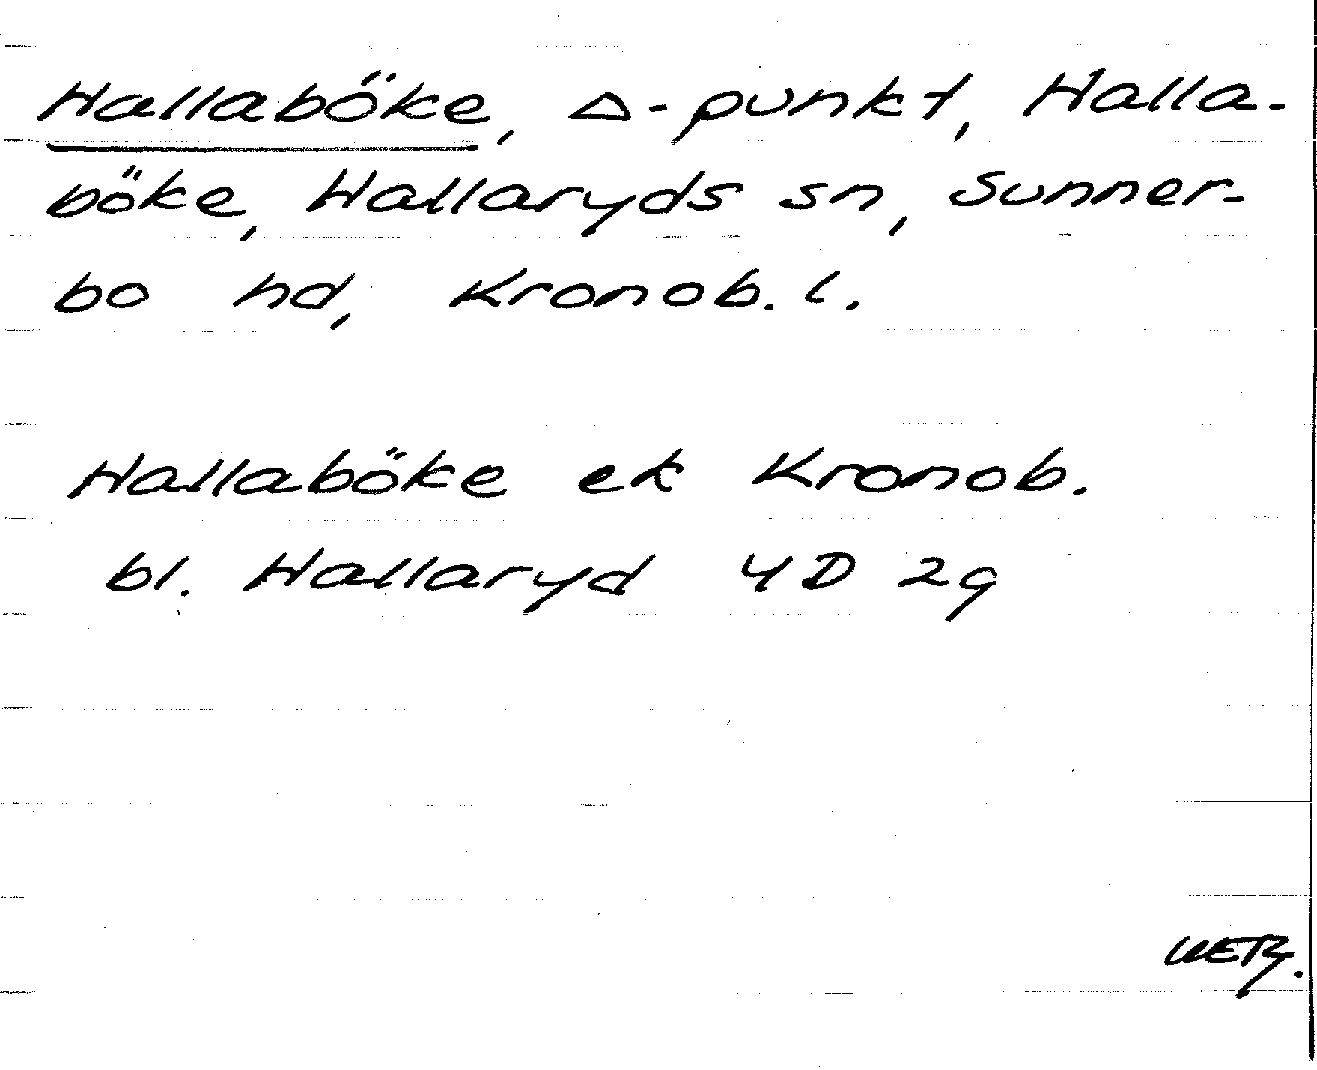 Hallaböke, △-punkt, Halla-
böke, Hallaryds sn, Sunner-
bo hd, Kronob. l.
Hallaböke ek Kronob.
bl. Hallaryd 4D 2g